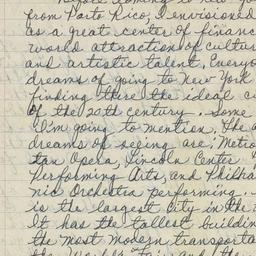 Before coming to New Yo
from Porto Rico, I envisioned
as a great center of financ
world attraction of cultur
and artistic talent. Everyo
dreams of going to New York
finding there the ideal c
of the 20th century. Some
I'm going to mention. The a
dreams of seeing are: Metro
tan Opera, Lincoln Center
Performing Arts, and Philha
nic Orchestra performing.
is the largest city in the
It has the tallest buildin
the most modern transporta
the World's Fair and the